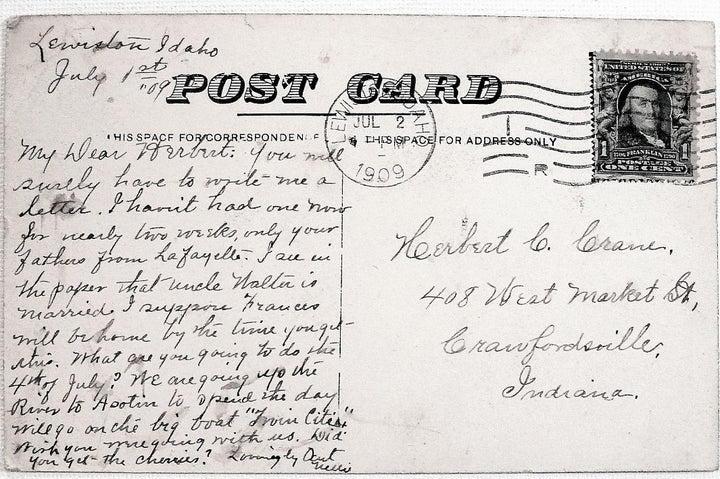 Lewiston Idaho
July 1st
"09
POST CARD
THIS SPACE FOR CORRESPONDENCE
THIS SPACE FOR ADDRESS ONLY
LEWISTON IDAHO
JUL 2
1909
R
SERIES 1902
UNITED STATES OF
AMERICA
FRANKLIN
POSTAGE
1 ONE CENT 1
My Dear Herbert: You will
surely have to write me a
letter. I havn't had one now
for nearly two weeks, only your
fathers from Lafayette. I see in
the paper that uncle Walter is
married. I suppose Frances
will be home by the time you get
this. What are you going to do the
4th of July? We are going up the
River to Asotin to spend the day
will go on the big boat "Twin Cities"
Wish you were going with us. Did
you get the cherries? Lovingly Aunt
Nellie
Herbert C. Crane.
408 West Market St,
Crawfordsville,
Indiana.